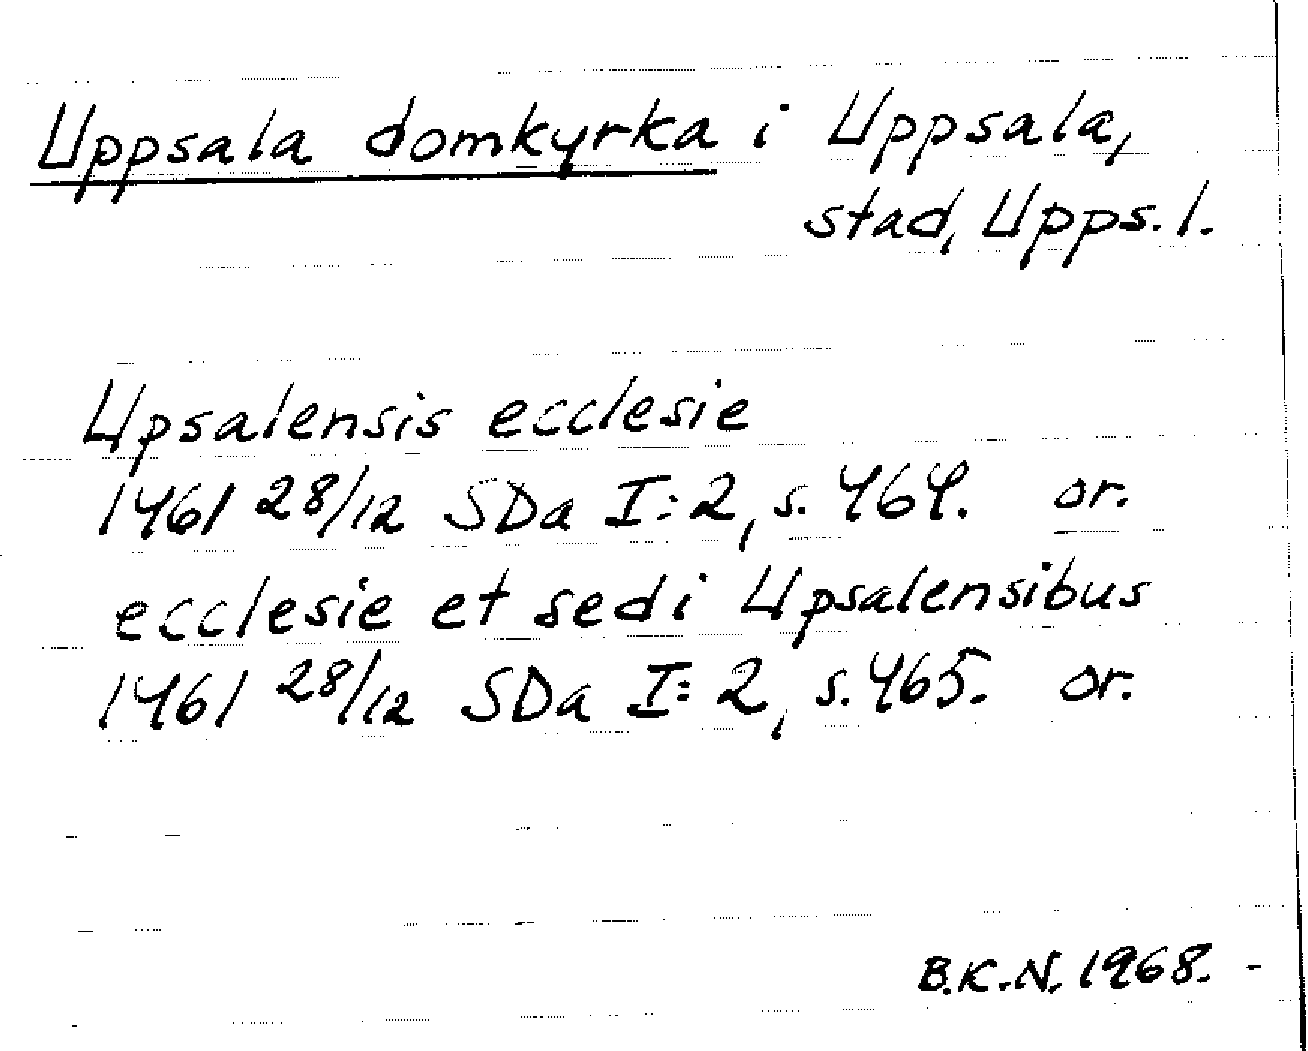 Uppsala domkyrka i Uppsala,
stad, Upps. l.
Upsalensis ecclesie
1461 28/12 SDa I:2, s. 464. or.
ecclesie et sedi Upsalensibus
1461 28/12 SDa I:2, s. 465. or.
B.K.N. 1968. -